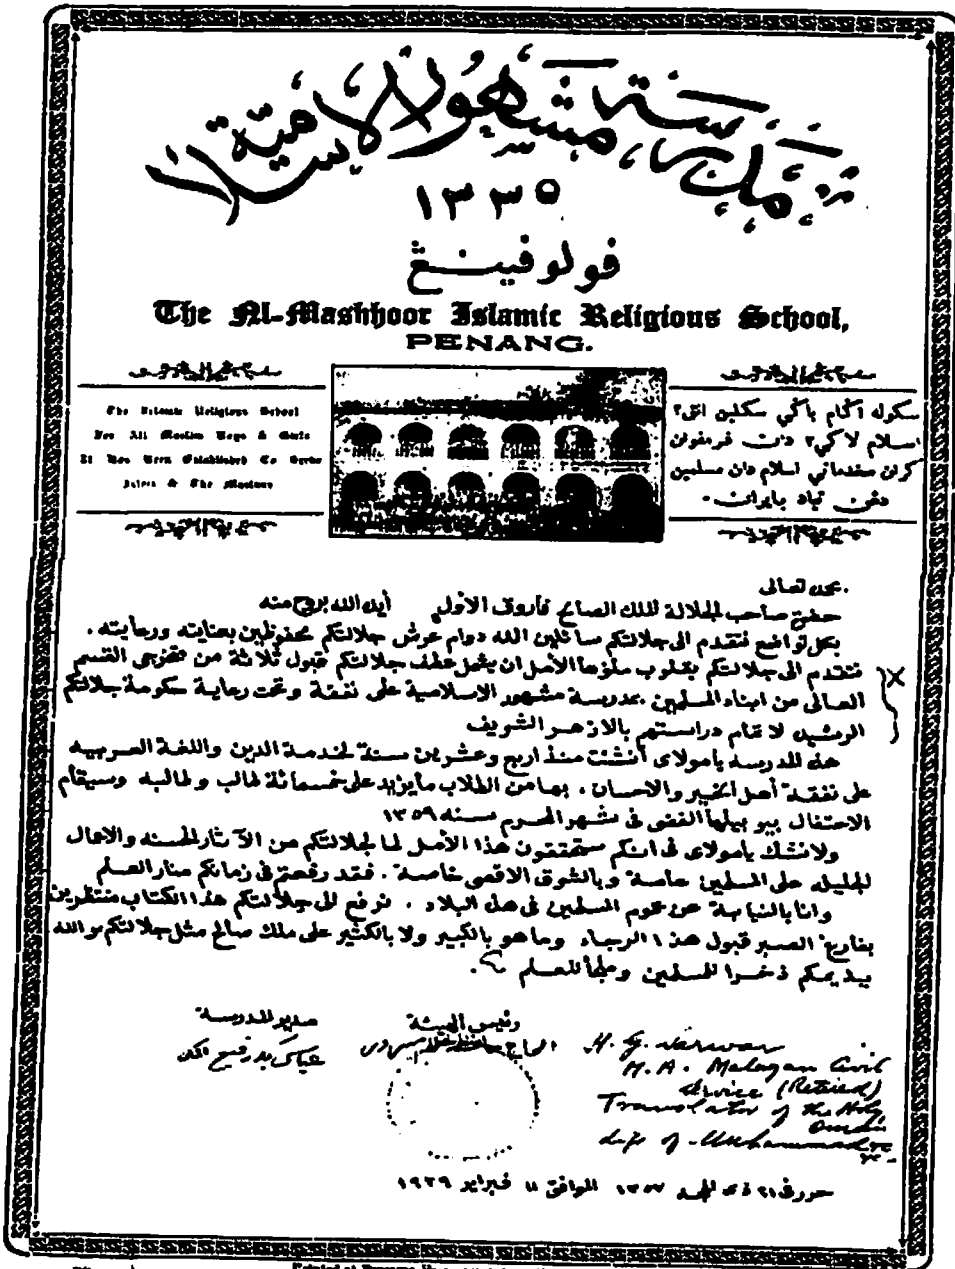 مدرسة مشهور الاسلامية
١٣٣٥
فولو فينڠ
The Al-Mashhoor Islamic Religious School,
PENANG.
The Islamic Religious School
For All Moslem Boys & Girls
It Has Been Established To Serve
Islam & The Moslems
سكوله اڬام باڬي سكلين انق٢
اسلام لاكي٢ دان فرمفوان
كران خدمتي اسلام دان مسلمين
دڠن تياد بايران.
بحمده تعالى
حضرة صاحب الجلالة الملك الصالح فاروق الاول أيده الله بروح منه
بكل تواضع نتقدم الى جلالتكم سائلين الله دوام عرش جلالتكم محفوظين بعنايته ورعايته.
نتقدم الى جلالتكم بقلوب ملؤها الأمل ان يشمل عطف جلالتكم قبول ثلاثة من متخرجى القسم
العالى من ابناء المسلمين بمدرسة مشهور الاسلامية على نفقة وتحت رعاية حكومة جلالتكم
الرشيده لاتمام دراستهم بالازهر الشريف
هذه المدرسه يامولاى أنشئت منذ اربع وعشرين سنة لخدمة الدين واللغة العربيه
على نفقة أهل الخير والاحسان. بها من الطلاب مايزيد على خمسمائة طالب وطالبه وسيقام
الاحتفال بيوبيلها الفضى فى شهر المحرم سنه ١٣٥٩
ولانشك يامولاى فى انكم ستحققون هذا الأمل لما لجلالتكم من الآثار الحسنه والاعمال
الجليله على المسلمين عامة وبالشرق الاقصى خاصة. فقد رفعتم فى زمانكم منار العلم
وانا بالنيابة عن عموم المسلمين فى هذه البلاد. نرفع الى جلالتكم هذا الكتاب منتظرين
بفارغ الصبر قبول هذا الرجاء وما هو بالكبير ولا بالكثير على ملك صالح مثل جلالتكم والله
يديمكم ذخرا للمسلمين وملجأ للعلم.
مدير المدرسة
رئيس الهيئة
الحاج
H. G. Sarwar
M.A. Malayan Civil
Service (Retired)
Translator of the Holy
Quran
Life of Muhammad etc
etc.
حرر فى ٢١ ذى الحجه ١٣٥٧ الموافق ١١ فبراير ١٩٣٩